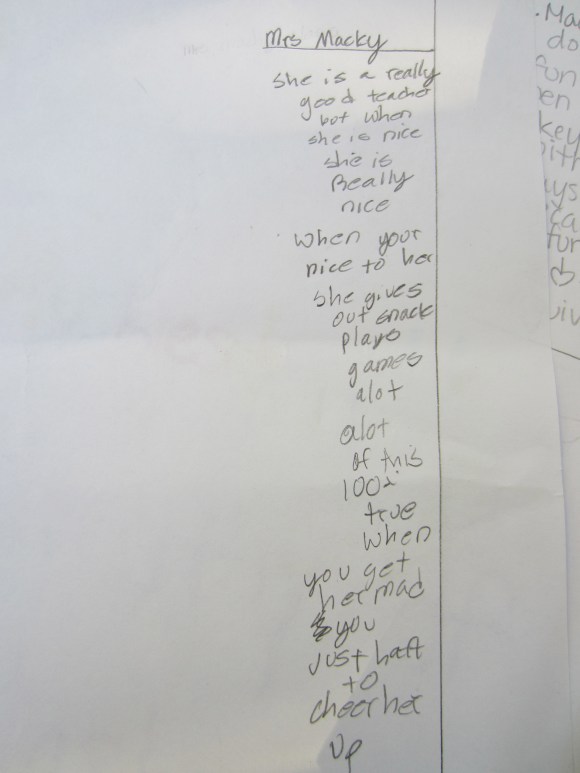 Mrs Macky
she is a really
good teacher
bot when
she is nice
she is
Really
nice
when your
nice to her
she gives
out snack
plays
games
alot
alot
of this
100%
true
when
you get
her mad
you
just haft
to
cheer her
up